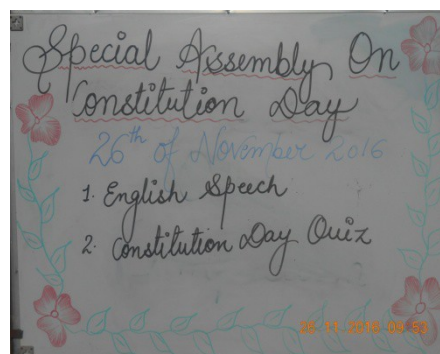 Special Assembly On
Constitution Day
26th of November 2016
1. English Speech
2. Constitution Day Quiz